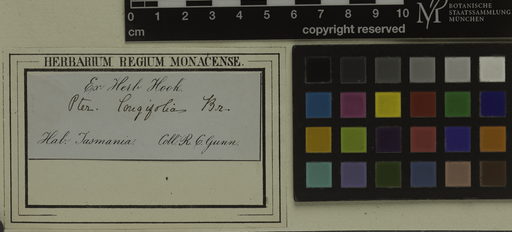 0 1 2 3 4 5 6 7 8 9 10
cm
copyright reserved
BOTANISCHE
STAATSSAMMLUNG
MÜNCHEN
HERBARIUM REGIUM MONACENSE.
Ex Herb. Hook.
Pter. longifolia Br.
Hab. Tasmania. Coll. R. C. Gunn.